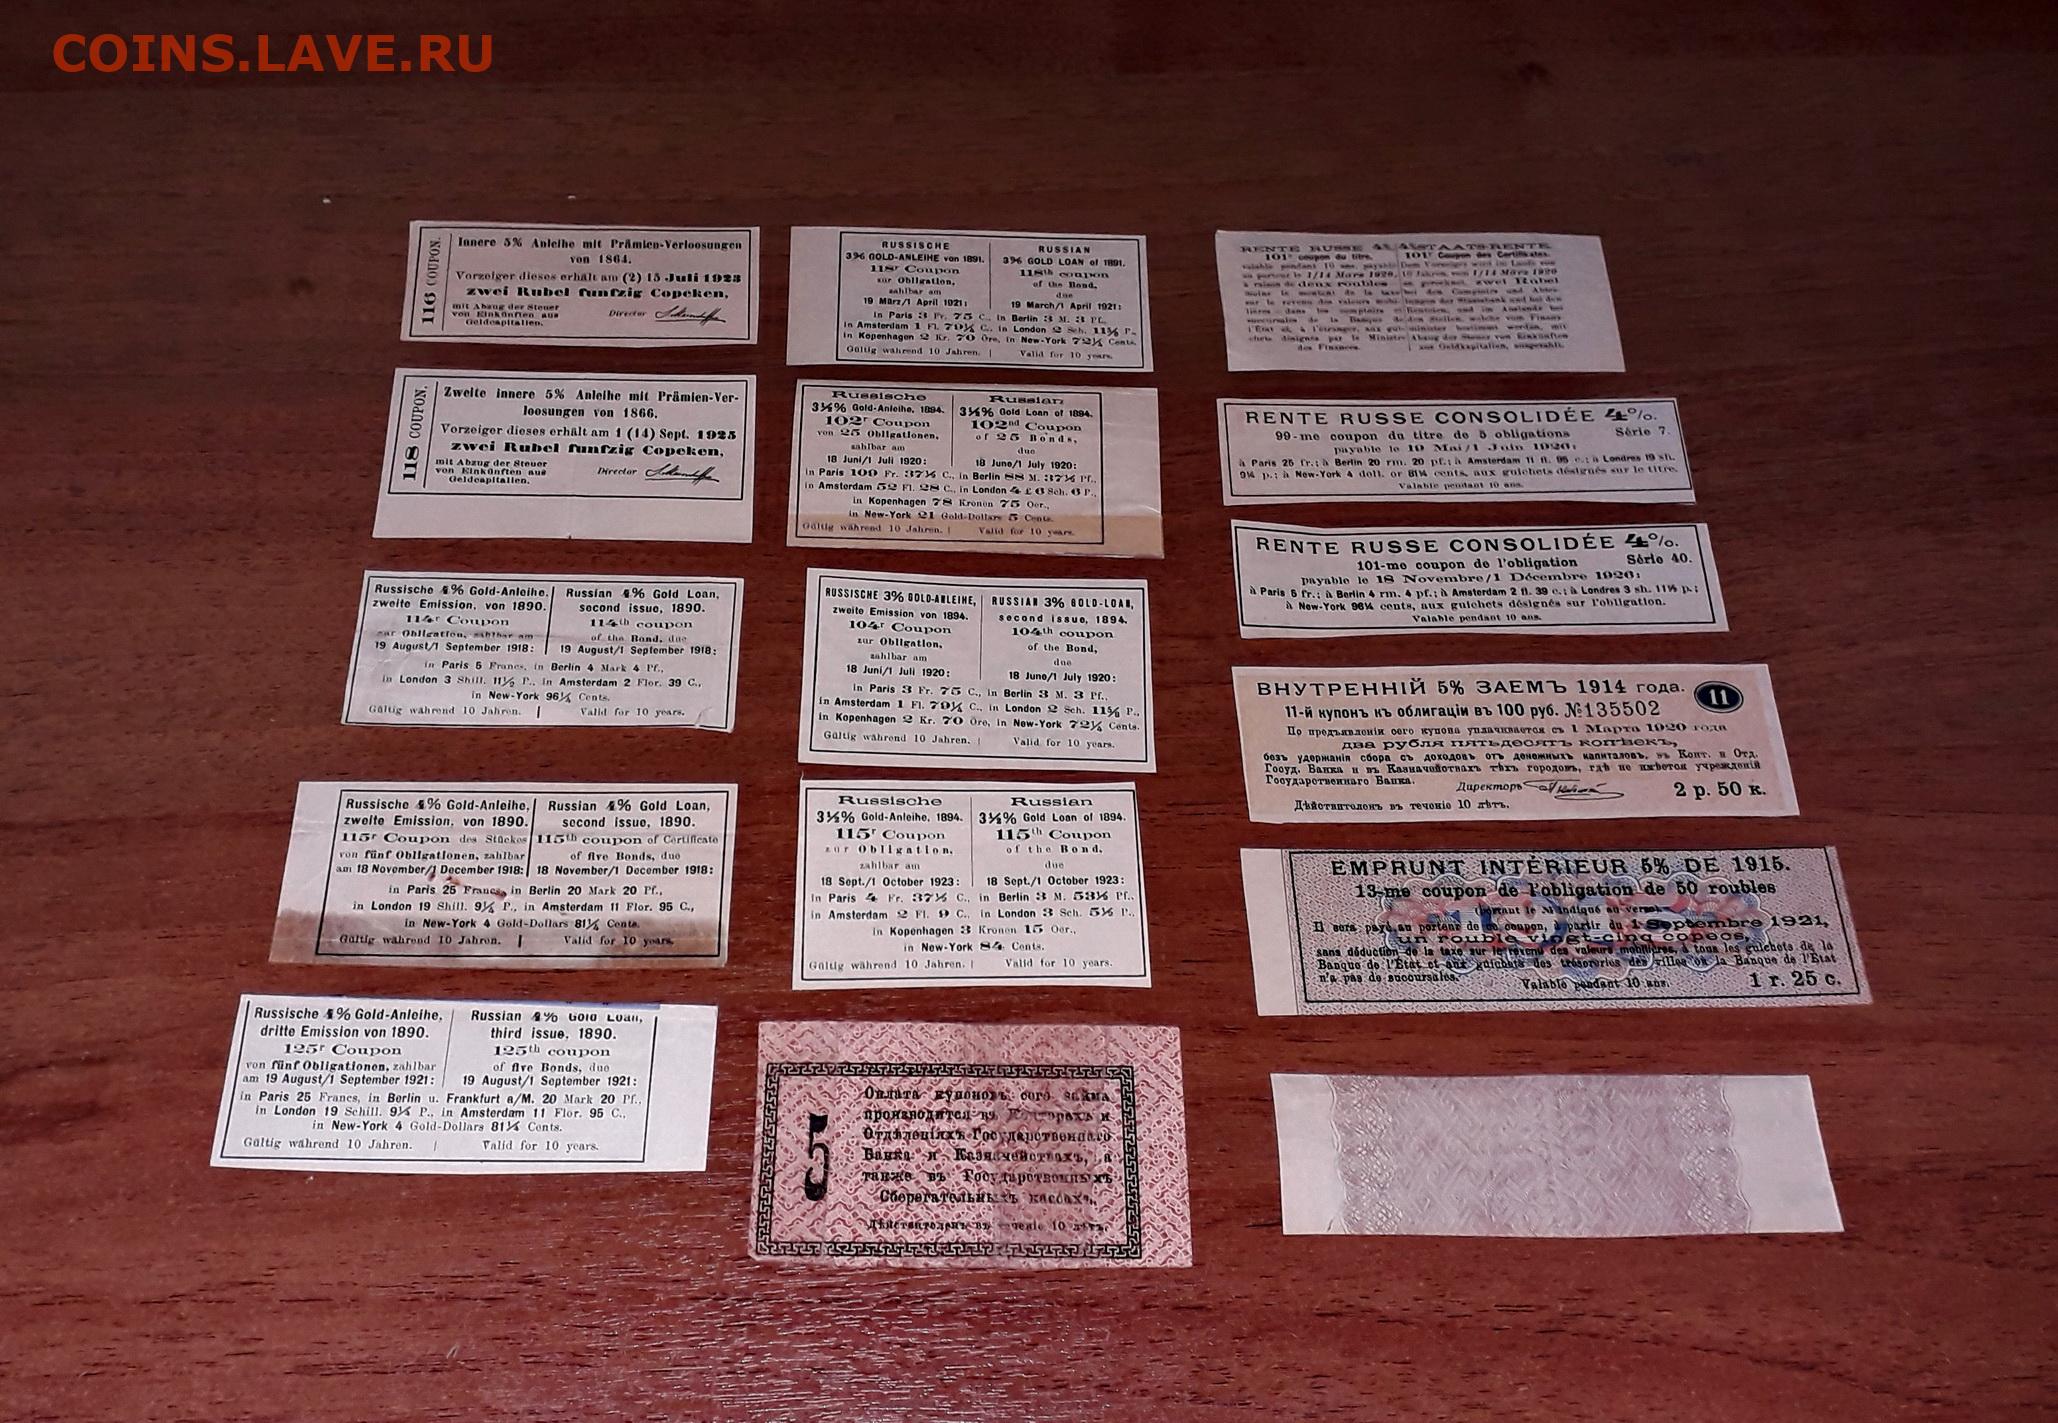 COINS.LAVE.RU
116 COUPON.
Innere 5% Anleihe mit Prämien-Verloosungen
von 1864.
Vorzeiger dieses erhält am (2) 15 Juli 1923
zwei Rubel funfzig Copeken,
mit Abzug der Steuer
von Einkünften aus
Geldcapitalien.
Director
118 COUPON.
Zweite innere 5% Anleihe mit Prämien-Ver-
loosungen von 1866.
Vorzeiger dieses erhält am 1 (14) Sept. 1925
zwei Rubel funfzig Copeken,
mit Abzug der Steuer
von Einkünften aus
Geldcapitalien.
Director
Russische 4% Gold-Anleihe,
zweite Emission, von 1890.
114r Coupon
zur Obligation, zahlbar am
19 August/1 September 1918:
Russian 4% Gold Loan,
second issue, 1890.
114th coupon
of the Bond, due
19 August/1 September 1918:
in Paris 5 Francs, in Berlin 4 Mark 4 Pf.,
in London 3 Shill. 11½ P., in Amsterdam 2 Flor. 39 C.,
in New-York 96¼ Cents.
Gültig während 10 Jahren. | Valid for 10 years.
Russische 4% Gold-Anleihe,
zweite Emission, von 1890.
115r Coupon des Stückes
von fünf Obligationen, zahlbar
am 18 November/1 December 1918:
Russian 4% Gold Loan,
second issue, 1890.
115th coupon of Certificate
of five Bonds, due
18 November/1 December 1918:
in Paris 25 Francs, in Berlin 20 Mark 20 Pf.,
in London 19 Shill. 9¼ P., in Amsterdam 11 Flor. 95 C.,
in New-York 4 Gold-Dollars 81¼ Cents.
Gültig während 10 Jahren. | Valid for 10 years.
Russische 4% Gold-Anleihe,
dritte Emission von 1890.
125r Coupon
von fünf Obligationen, zahlbar
am 19 August/1 September 1921:
Russian 4% Gold Loan,
third issue, 1890.
125th coupon
of five Bonds, due
19 August/1 September 1921:
in Paris 25 Francs, in Berlin u. Frankfurt a/M. 20 Mark 20 Pf.,
in London 19 Schill. 9¼ P., in Amsterdam 11 Flor. 95 C.,
in New-York 4 Gold-Dollars 81¼ Cents.
Gültig während 10 Jahren. | Valid for 10 years.
RUSSISCHE
3% GOLD-ANLEIHE von 1891.
118r Coupon
zur Obligation,
zahlbar am
19 März/1 April 1921:
RUSSIAN
3% GOLD LOAN of 1891.
118th coupon
of the Bond,
due
19 March/1 April 1921:
in Paris 3 Fr. 75 C., in Berlin 3 M. 3 Pf.,
in Amsterdam 1 Fl. 79¼ C., in London 2 Sch. 11⅝ P.,
in Kopenhagen 2 Kr. 70 Öre, in New-York 72¼ Cents.
Gültig während 10 Jahren. | Valid for 10 years.
Russische
3½% Gold-Anleihe, 1894.
102r Coupon
von 25 Obligationen,
zahlbar am
18 Juni/1 Juli 1920:
Russian
3½% Gold Loan of 1894.
102nd Coupon
of 25 Bonds,
due
18 June/1 July 1920:
in Paris 109 Fr. 37½ C., in Berlin 88 M. 37½ Pf.,
in Amsterdam 52 Fl. 28 C., in London 4 £ 6 Sch. 6 P.,
in Kopenhagen 78 Kronen 75 Oer.,
in New-York 21 Gold-Dollars 5 Cents.
Gültig während 10 Jahren. | Valid for 10 years.
RUSSISCHE 3% GOLD-ANLEIHE,
zweite Emission von 1894.
104r Coupon
zur Obligation,
zahlbar am
18 Juni/1 Juli 1920:
RUSSIAN 3% GOLD-LOAN,
second issue, 1894.
104th coupon
of the Bond,
due
18 June/1 July 1920:
in Paris 3 Fr. 75 C., in Berlin 3 M. 3 Pf.,
in Amsterdam 1 Fl. 79¼ C., in London 2 Sch. 11⅝ P.,
in Kopenhagen 2 Kr. 70 Öre, in New-York 72¼ Cents.
Gültig während 10 Jahren. | Valid for 10 years.
Russische
3½% Gold-Anleihe, 1894.
115r Coupon
zur Obligation,
zahlbar am
18 Sept./1 October 1923:
Russian
3½% Gold Loan of 1894.
115th Coupon
of the Bond,
due
18 Sept./1 October 1923:
in Paris 4 Fr. 37½ C., in Berlin 3 M. 53½ Pf.,
in Amsterdam 2 Fl. 9 C., in London 3 Sch. 5½ P.,
in Kopenhagen 3 Kronen 15 Oer.,
in New-York 84 Cents.
Gültig während 10 Jahren. | Valid for 10 years.
5
Оплата купоновъ сего займа
производится въ Конторахъ и
Отдѣленіяхъ Государственнаго
Банка и Казначействахъ, а
также въ Государственныхъ
Сберегательныхъ кассахъ.
Дѣйствителенъ въ теченіе 10 лѣтъ.
RENTE RUSSE 4%
101e coupon du titre,
valable pendant 10 ans, payable
au porteur le 1/14 Mars 1926,
à raison de deux roubles
moins le montant de la taxe
sur le revenu des valeurs mobi-
lières dans les comptoirs et
succursales de la Banque de
l'État et, à l'étranger, aux gui-
chets désignés par le Ministre
des Finances.
4% STAATS-RENTE.
101r Coupon des Certificates.
Dem Vorzeiger wird im Laufe von
10 Jahren, vom 1/14 März 1926
an gerechnet, zwei Rubel
bei den Comptoirs und Abtei-
lungen der Staatsbank und bei den
Renteien, und im Auslande bei
den Stellen, welche vom Finanz-
minister bestimmt werden, mit
Abzug der Steuer von Einkünften
aus Geldkapitalien, ausgezahlt.
RENTE RUSSE CONSOLIDÉE 4%.
99-me coupon du titre de 5 obligations Série 7.
payable le 19 Mai/1 Juin 1926:
à Paris 25 fr.; à Berlin 20 rm. 20 pf.; à Amsterdam 11 fl. 95 c.; à Londres 19 sh.
9¼ p.; à New-York 4 doll. or 81¼ cents, aux guichets désignés sur le titre.
Valable pendant 10 ans.
RENTE RUSSE CONSOLIDÉE 4%.
101-me coupon de l'obligation Série 40.
payable le 18 Novembre/1 Décembre 1926:
à Paris 5 fr.; à Berlin 4 rm. 4 pf.; à Amsterdam 2 fl. 39 c.; à Londres 3 sh. 11½ p.;
à New-York 96¼ cents, aux guichets désignés sur l'obligation.
Valable pendant 10 ans.
ВНУТРЕННІЙ 5% ЗАЕМЪ 1914 года. 11
11-й купонъ къ облигаціи въ 100 руб. №135502
По предъявленіи сего купона уплачивается съ 1 Марта 1920 года
два рубля пятьдесятъ копѣекъ,
безъ удержанія сбора съ доходовъ отъ денежныхъ капиталовъ, въ Конт. и Отд.
Госуд. Банка и въ Казначействахъ тѣхъ городовъ, гдѣ не имѣется учрежденій
Государственнаго Банка.
Директоръ
2 р. 50 к.
Дѣйствителенъ въ теченіе 10 лѣтъ.
EMPRUNT INTÉRIEUR 5% DE 1915.
13-me coupon de l'obligation de 50 roubles
(portant le № indiqué au verso).
Il sera payé au porteur de ce coupon, à partir du 1 Septembre 1921,
un rouble vingt-cinq copecs,
sans déduction de la taxe sur le revenu des valeurs mobilières, à tous les guichets de la
Banque de l'État et aux guichets des trésoreries des villes où la Banque de l'État
n'a pas de succursales.
Valable pendant 10 ans.
1 r. 25 c.